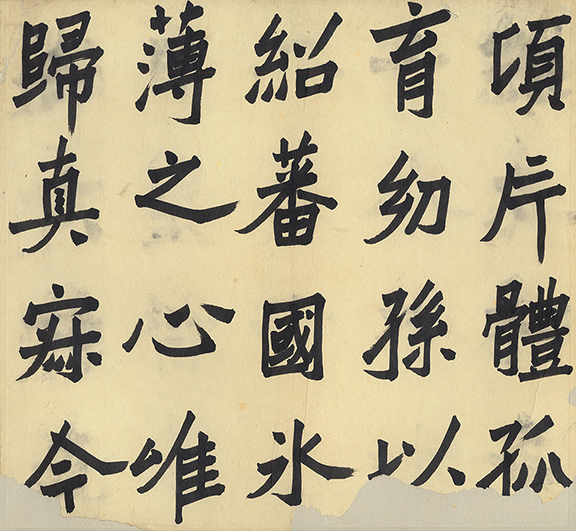 頃片體孤
育幼孫以
紹蕃國氷
薄之心唯
歸真寂今